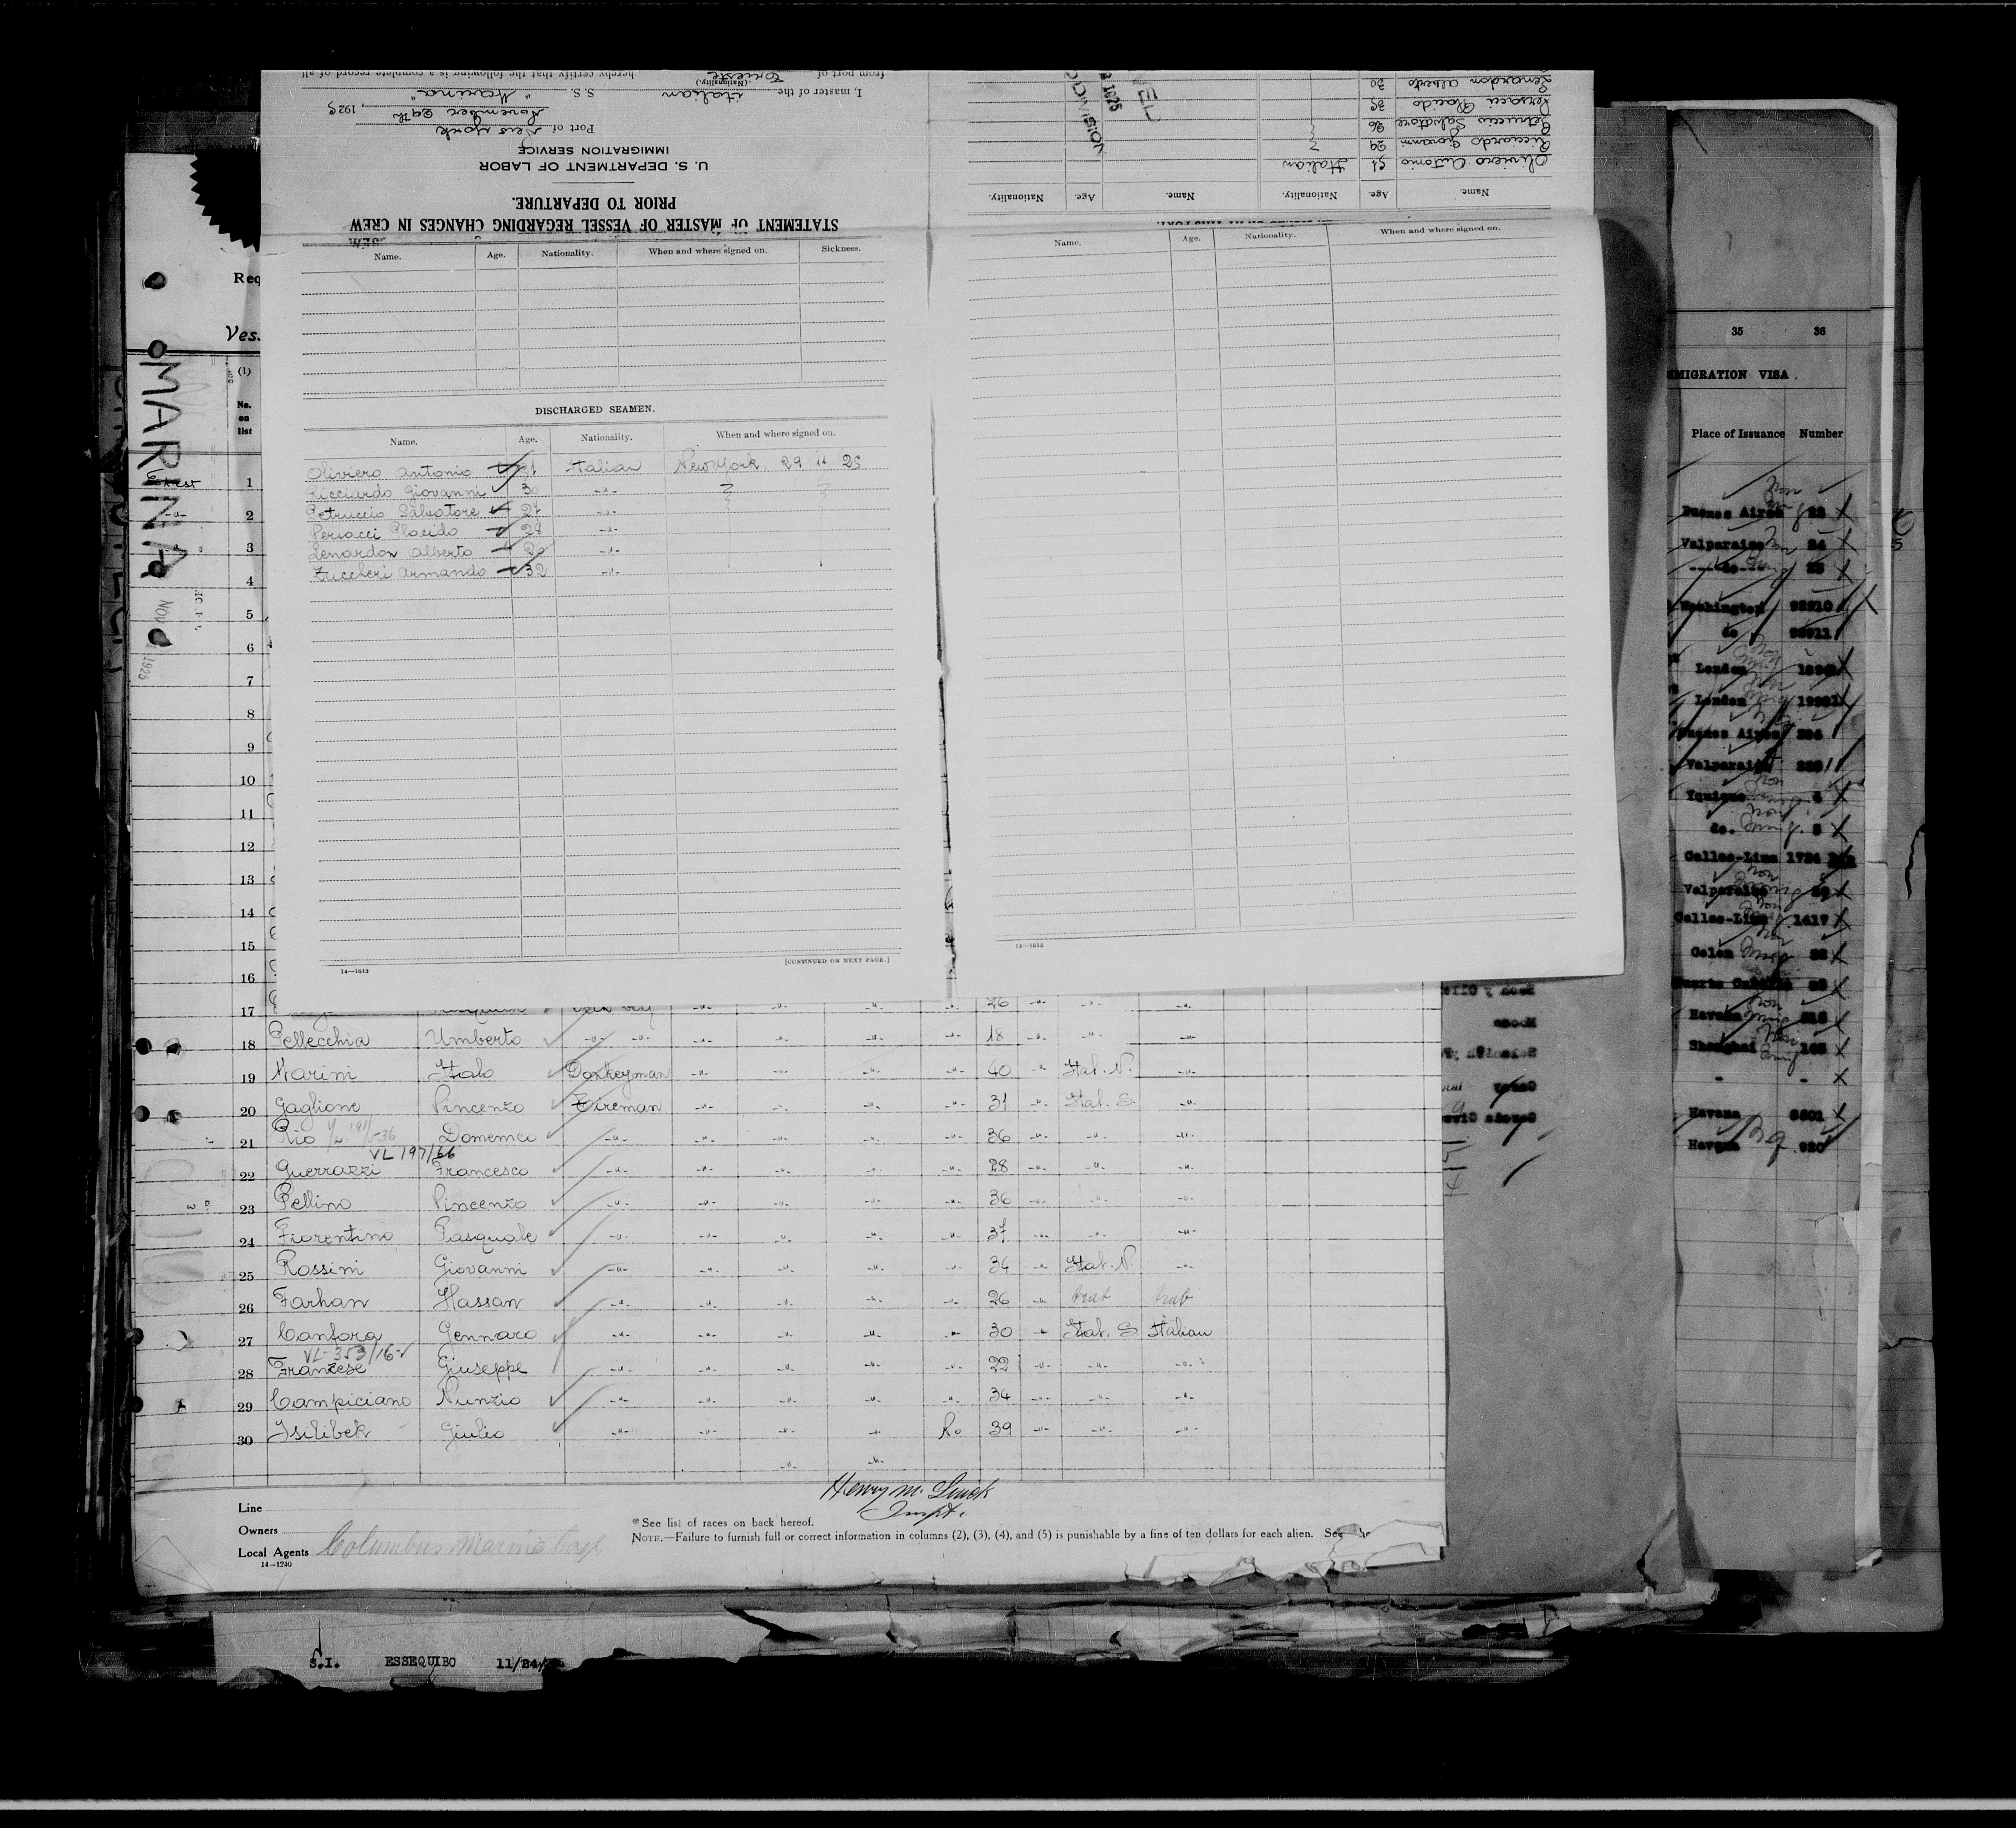 from port of Trieste hereby certify that the following is a complete record of all
(Nationality.)
I, master of the italian S. S. "Marina"
November 29th, 1925
Port of New York
IMMIGRATION SERVICE
U. S. DEPARTMENT OF LABOR
PRIOR TO DEPARTURE.
STATEMENT OF MASTER OF VESSEL REGARDING CHANGES IN CREW
Lenardon Alberto 30
Persacci Placido
Petruccio Salvatore 26
Ricciardo Giovanni 29
Oliviero Antonio 51 Italian
Name. Age. Nationality. Name. Age. Nationality.
1925
DIVISION
Name. Age. Nationality. When and where signed on. Sickness.
DISCHARGED SEAMEN.
Name. Age. Nationality. When and where signed on.
Oliviero Antonio 51 Italian New York, 29 11 25
Ricciardo Giovanni 30 -"-
Petruccio Salvatore 27 -"-
Persacci Placido 28 -"-
Lenardon Alberto -"-
Zuccheri Armando 32 -"-
14—1613 [CONTINUED ON NEXT PAGE.]
Name. Age. Nationality. When and where signed on.
14—1613
MARINA
NOV 1925
Req
Ves.
(1)
No.
on
list
1
2
3
4
5
6
7
8
9
10
11
12
13
14
15
16
17 26
18 Pellecchia Umberto -"- -"- -"- -"- -"- 18 -"- -"- -"-
19 Marini Italo Donkeyman -"- -"- -"- -"- 40 -"- Ital. N. -"-
20 Gaglione Vincenzo Fireman -"- -"- -"- -"- 31 -"- Ital. S. -"-
21 Rio Domenico -"- -"- -"- -"- -"- 36 -"- -"- -"-
VL 197/66
22 Guerrazzi Francesco -"- -"- -"- -"- -"- 28 -"- -"- -"-
23 Pellino Vincenzo -"- -"- -"- -"- -"- 36 -"- -"- -"-
24 Fiorentino Pasquale -"- -"- -"- -"- -"- 37 -"- -"- -"-
25 Rossini Giovanni -"- -"- -"- -"- -"- 34 -"- Ital. N. -"-
26 Farhan Hassan -"- -"- -"- -"- -"- 26 -"- Arab Arab
27 Canfora Gennaro -"- -"- -"- -"- -"- 30 -"- Ital. S. Italian
VL-353/16
28 Franzese Giuseppe -"- -"- -"- -"- -"- 22 -"- -"- -"-
29 Campiciano Nunzio -"- -"- -"- -"- -"- 34 -"- -"- -"-
30 Isilibek Giulio -"- -"- -"- -"- No 39 -"- -"- -"-
Henry M.
Inspt.
Line
Owners
Local Agents Columbus Marine Corp.
14—1240
*See list of races on back hereof.
NOTE.—Failure to furnish full or correct information in columns (2), (3), (4), and (5) is punishable by a fine of ten dollars for each alien. See
S.I. ESSEQUIBO 11/24/
35 36
IMMIGRATION VISA
Place of Issuance Number
Buenos Aires
Valparaiso 24
--do-- 25
Washington 92910
do 92911
London
London
Buenos Aires
Valparaiso
Yquique 4
do. 5
Callao-Lima 1724
Valparaiso
Callao-Lima 1417
Colon
Puerto Cabello
Havana
Shanghai
- -
Havana
Havana